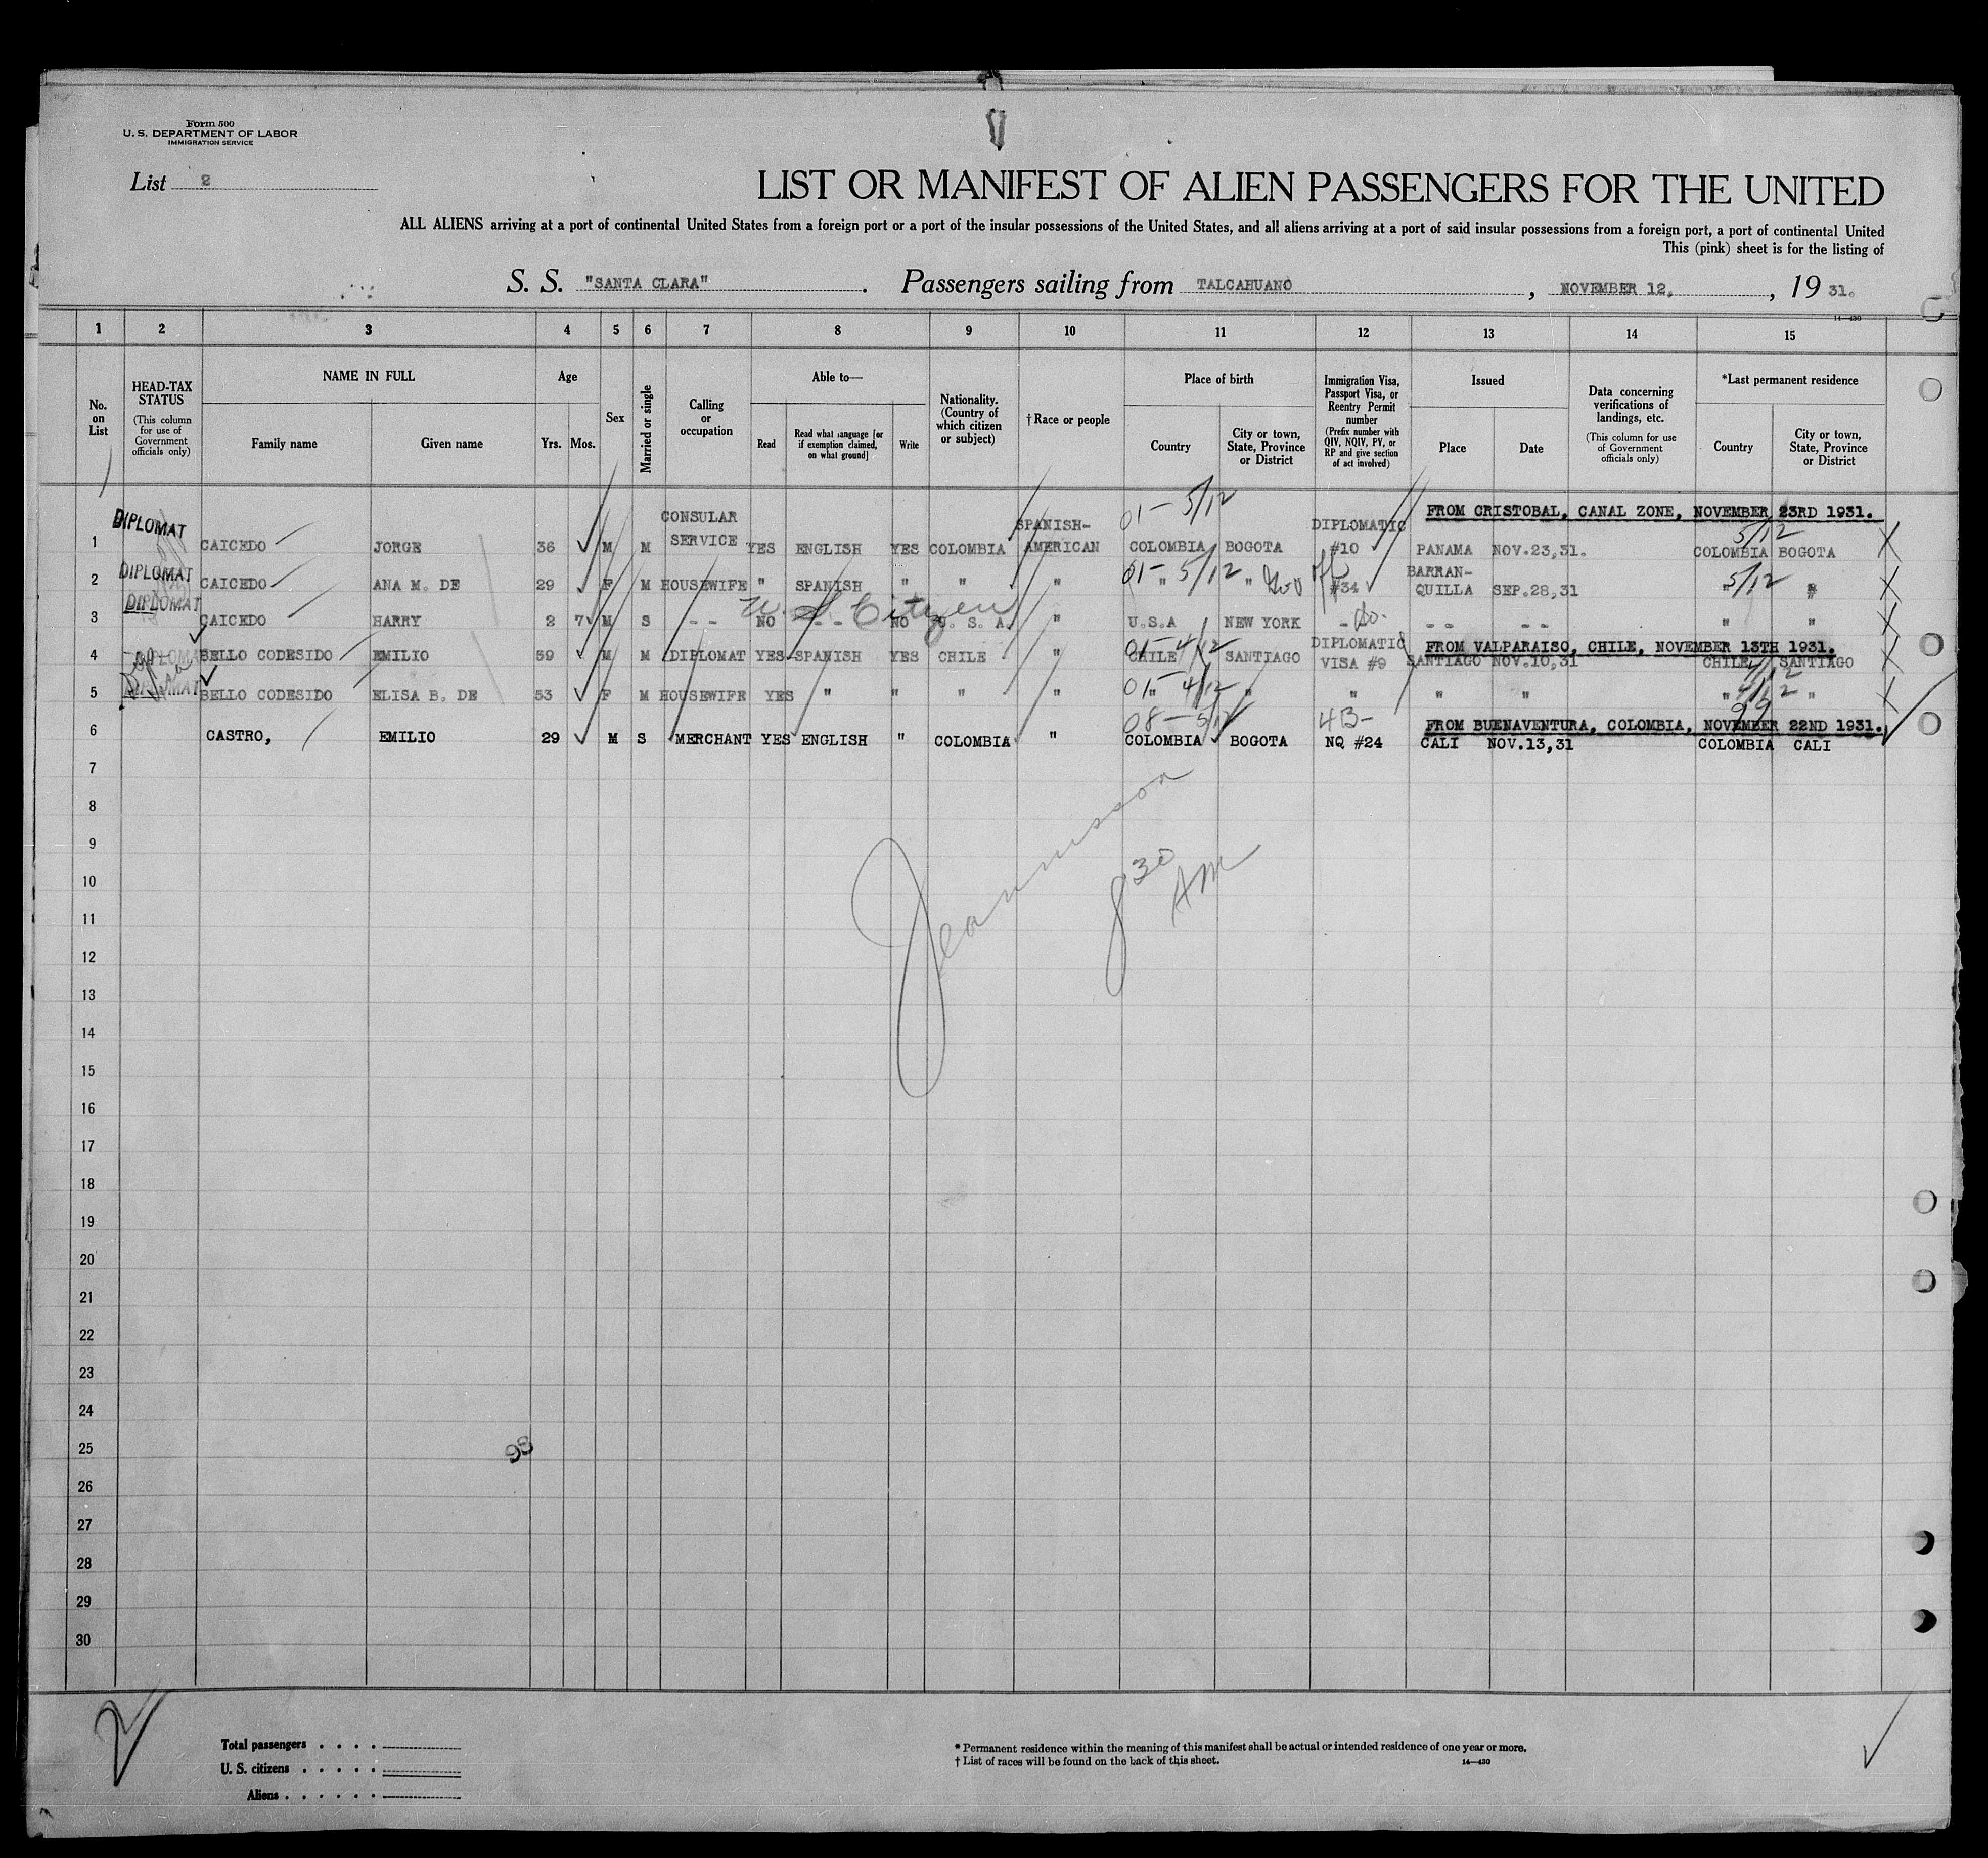 Form 500
U. S. DEPARTMENT OF LABOR
IMMIGRATION SERVICE
List 2
LIST OR MANIFEST OF ALIEN PASSENGERS FOR THE UNITED
ALL ALIENS arriving at a port of continental United States from a foreign port or a port of the insular possessions of the United States, and all aliens arriving at a port of said insular possessions from a foreign port, a port of continental United
This (pink) sheet is for the listing of
S. S. "SANTA CLARA". Passengers sailing from TALCAHUANO, NOVEMBER 12, , 19 31.
14—430
1 2 3 4 5 6 7 8 9 10 11 12 13 14 15
No. on List
HEAD-TAX STATUS
(This column for use of Government officials only)
NAME IN FULL
Family name Given name
Age
Yrs. Mos.
Sex
Married or single
Calling or occupation
Able to—
Read Read what language [or if exemption claimed, on what ground] Write
Nationality. (Country of which citizen or subject)
†Race or people
Place of birth
Country City or town, State, Province or District
Immigration Visa, Passport Visa, or Reentry Permit number
(Prefix number with QIV, NQIV, PV, or RP and give section of act involved)
Issued
Place Date
Data concerning verifications of landings, etc.
(This column for use of Government officials only)
*Last permanent residence
Country City or town, State, Province or District
FROM CRISTOBAL, CANAL ZONE, NOVEMBER 23RD 1931.
01- 5/12 5/12
1 DIPLOMAT CAICEDO JORGE 36 M M CONSULAR SERVICE YES ENGLISH YES COLOMBIA SPANISH-AMERICAN COLOMBIA BOGOTA DIPLOMATIC #10 PANAMA NOV.23,31. COLOMBIA BOGOTA
01- 5/12 5/12
2 DIPLOMAT CAICEDO ANA M. DE 29 F M HOUSEWIFE " SPANISH " " " " " #34 BARRAN-QUILLA SEP.28,31 " "
U.S. Citizen
3 DIPLOMAT CAICEDO HARRY 2 7 M S -- NO -- NO U. S. A. " U.S.A NEW YORK - -- -- " "
FROM VALPARAISO, CHILE, NOVEMBER 13TH 1931.
01- 4/12 4/12
4 DIPLOMAT BELLO CODESIDO EMILIO 59 M M DIPLOMAT YES SPANISH YES CHILE " CHILE SANTIAGO DIPLOMATIC VISA #9 SANTIAGO NOV.10,31 CHILE SANTIAGO
01- 4/12 4/12
5 DIPLOMAT BELLO CODESIDO ELISA B. DE 53 F M HOUSEWIFE YES " " " " " " " " " " "
FROM BUENAVENTURA, COLOMBIA, NOVEMBER 22ND 1931.
08- 5/12 4B- 99
6 CASTRO, EMILIO 29 M S MERCHANT YES ENGLISH " COLOMBIA " COLOMBIA BOGOTA NQ #24 CALI NOV.13,31 COLOMBIA CALI
7
8
830 AM
9
10
11
12
13
14
15
16
17
18
19
20
21
22
23
24
25
98
26
27
28
29
30
2
Total passengers . . . .
U. S. citizens . . . . .
Aliens . . . . . .
* Permanent residence within the meaning of this manifest shall be actual or intended residence of one year or more.
† List of races will be found on the back of this sheet.
14—430